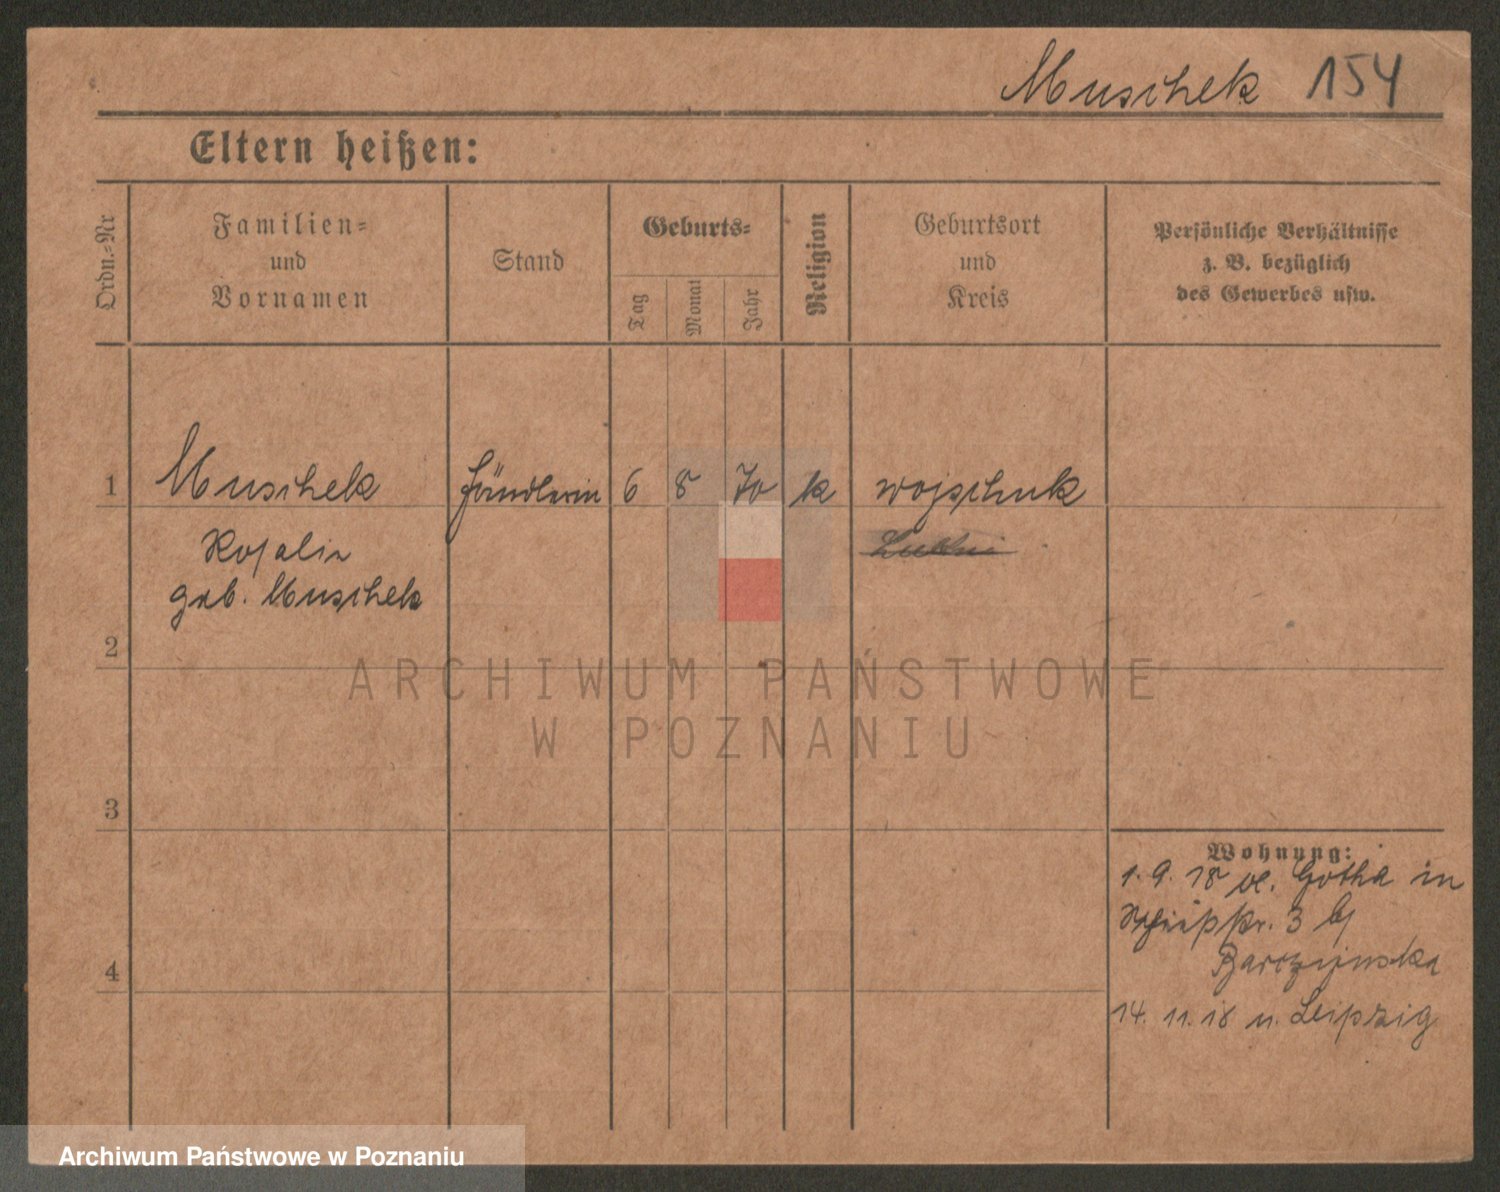 Muschek 154
Eltern heißen:
Ordn.-Nr
Familien-
und
Vornamen
Stand
Geburts-
Tag
Monat
Jahr
Religion
Geburtsort
und
Kreis
Persönliche Verhältnisse
z. B. bezüglich
des Gewerbes usw.
1 Muschek Händlerin 6 8 70 k Wojschuk
Rosalie
geb. Muschek
2
3
4
Wohnung:
1. 9. 18 v. Gotha in
3 b/
Barczynska
14. 11. 18 n. Leipzig
ARCHIWUM PAŃSTWOWE
W POZNANIU
Archiwum Państwowe w Poznaniu